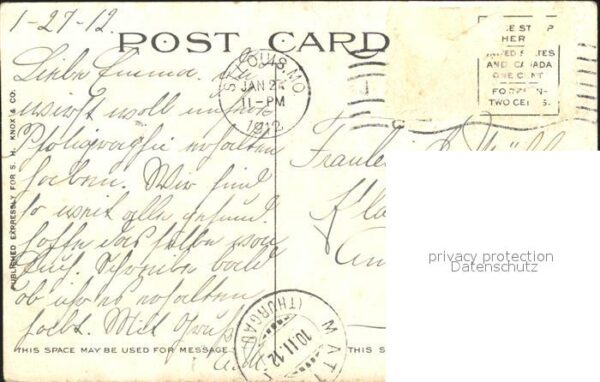 1-27-12.
POST CARD
Liebe Emma. Du
wirst wohl unsere
Photographie erhalten
haben. Wir sind
so weit alle gesund.
hoffe dasselbe von
Euch. Schreibe bald
ob ihr es erhalten
habt. Mit Gruß
ST. LOUIS, MO.
JAN 27
11-PM
1912
HERE
UNITED STATES
AND CANADA
ONE CENT
FOREIGN
TWO CENTS.
Fraulein
PUBLISHED EXPRESSLY FOR S. H. KNOX & CO.
THIS SPACE MAY BE USED FOR MESSAGE
THIS SPACE
(THURGAU)
10.II.12
privacy protection
Datenschutz